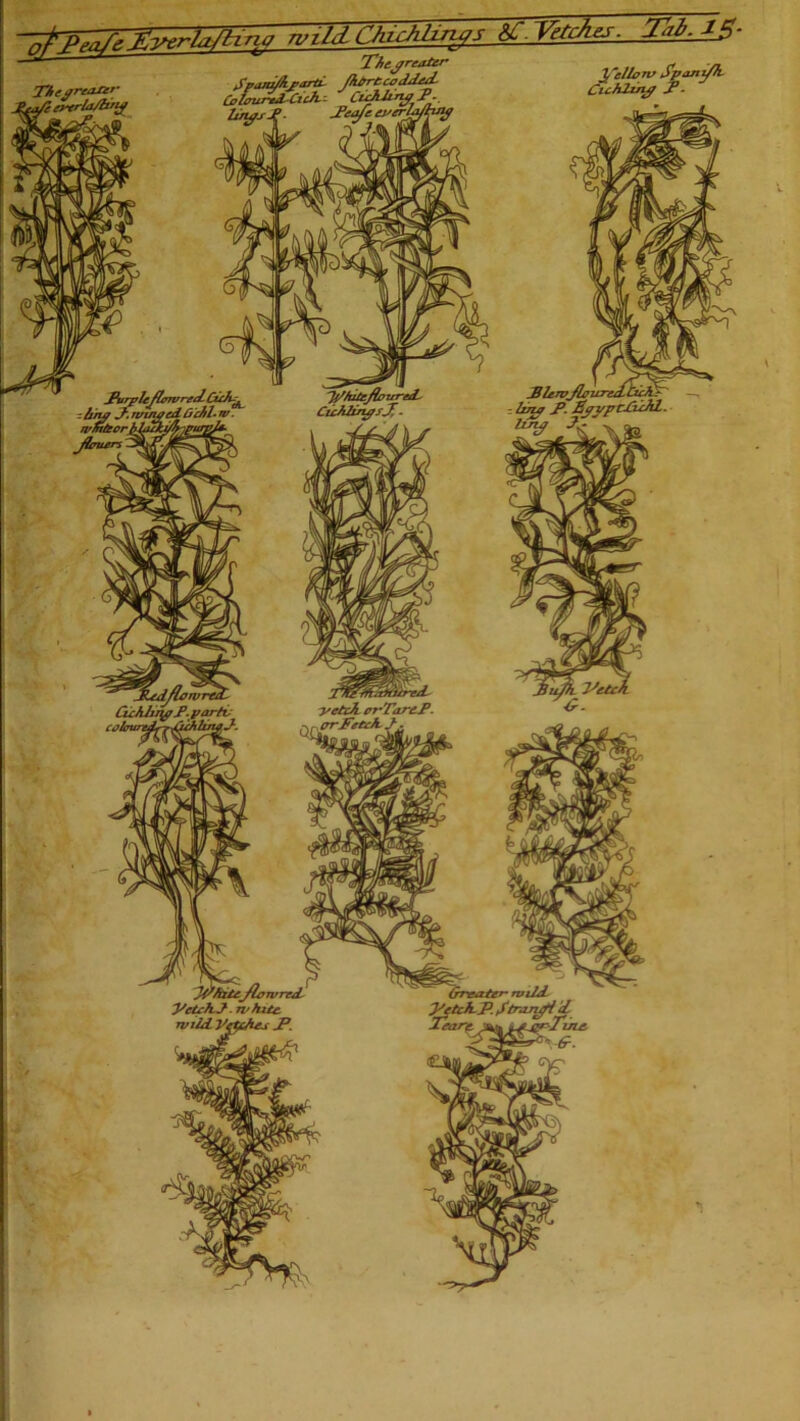 of Pease Everlasting wild Chichlings &. Vetches. Tab. 15.
The greater
Pease everlasting
Spanish parti
Coloured-Cich-
lings P.
The greater
short codded
Cichling P.
Pease everlasting
Yellow Spanish
Cichling P.
Purple flowred Cich-
-ling J. winged Cichl. w.
white or blackish purple
flouers P.
White floured
Cichlings J.
Blew floured Cich-
-ling P. Egypt-Cichl.
ling J.
Red flowred
Cichling P. parti-
coloured Cichling J.
vetch or Tare P.
or Fetch J.
Bush Vetch
G.
White flowred
Vetch J. white
wild Vetches P.
Greater wild
Vetch P. Strangl'd
Teare or Tine
G.